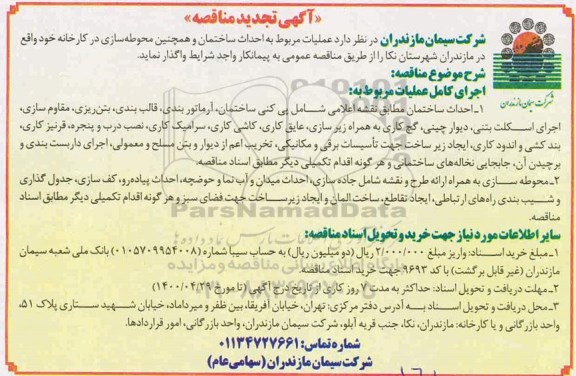 «آگهی تجدید مناقصه»
شرکت سیمان مازندران در نظر دارد عملیات مربوط به احداث ساختمان و همچنین محوطه‌سازی در کارخانه خود واقع
در مازندران شهرستان نکا را از طریق مناقصه عمومی به پیمانکار واجد شرایط واگذار نماید.
شرکت سیمان مازندران
شرح موضوع مناقصه:
اجرای کامل عملیات مربوط به:
۱ـ احداث ساختمان مطابق نقشه اعلامی شامل پی کنی ساختمان، آرماتور بندی، قالب بندی، بتن‌ریزی، مقاوم سازی،
اجرای اسکلت بتنی، دیوار چینی، گچ کاری به همراه زیر سازی، عایق کاری، کاشی کاری، سرامیک کاری، نصب درب و پنجره، قرنیز کاری،
بند کشی و اندود کاری، ایجاد زیر ساخت جهت تأسیسات برقی و مکانیکی، تخریب اعم از دیوار و بتن مسلح و معمولی، اجرای داربست بندی و
برچیدن آن، جابجایی نخاله‌های ساختمانی و هر گونه اقدام تکمیلی دیگر مطابق اسناد مناقصه.
۲ـ محوطه سازی به همراه ارائه طرح و نقشه شامل جاده سازی، احداث میدان و آب نما و حوضچه، احداث پیاده‌رو، کف سازی، جدول گذاری
و شیب بندی راه‌های ارتباطی، ایجاد تقاطع، ساخت المان و ایجاد زیرساخت جهت فضای سبز و هر گونه اقدام تکمیلی دیگر مطابق اسناد
مناقصه.
سایر اطلاعات مورد نیاز جهت خرید و تحویل اسناد مناقصه:
۱ـ مبلغ خرید اسناد: واریز مبلغ ۲/۰۰۰/۰۰۰ ریال (دو میلیون ریال) به حساب سیبا شماره (۰۱۰۵۷۰۹۹۵۴۰۰۸) بانک ملی شعبه سیمان
مازندران (غیر قابل برگشت) با کد ۹۶۹۳ جهت خرید اسناد مناقصه
۲ـ مهلت دریافت و تحویل اسناد: حداکثر به مدت ۷ روز کاری از تاریخ درج آگهی (تا مورخ ۱۴۰۰/۰۴/۲۹)
۳ـ محل دریافت و تحویل اسناد به آدرس دفتر مرکزی: تهران، خیابان آفریقا، بین ظفر و میرداماد، خیابان شهید ستاری پلاک ۵۱،
واحد بازرگانی و یا کارخانه: مازندران، نکا، جنب قریه آبلو، شرکت سیمان مازندران، واحد بازرگانی، امور قراردادها.
شماره تماس: ۰۱۱۳۴۷۲۷۶۶۱
شرکت سیمان مازندران (سهامی عام)
ParsNamadData